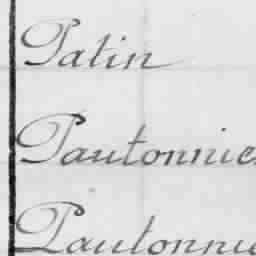 Patin
Pautonnie
Pautonnie